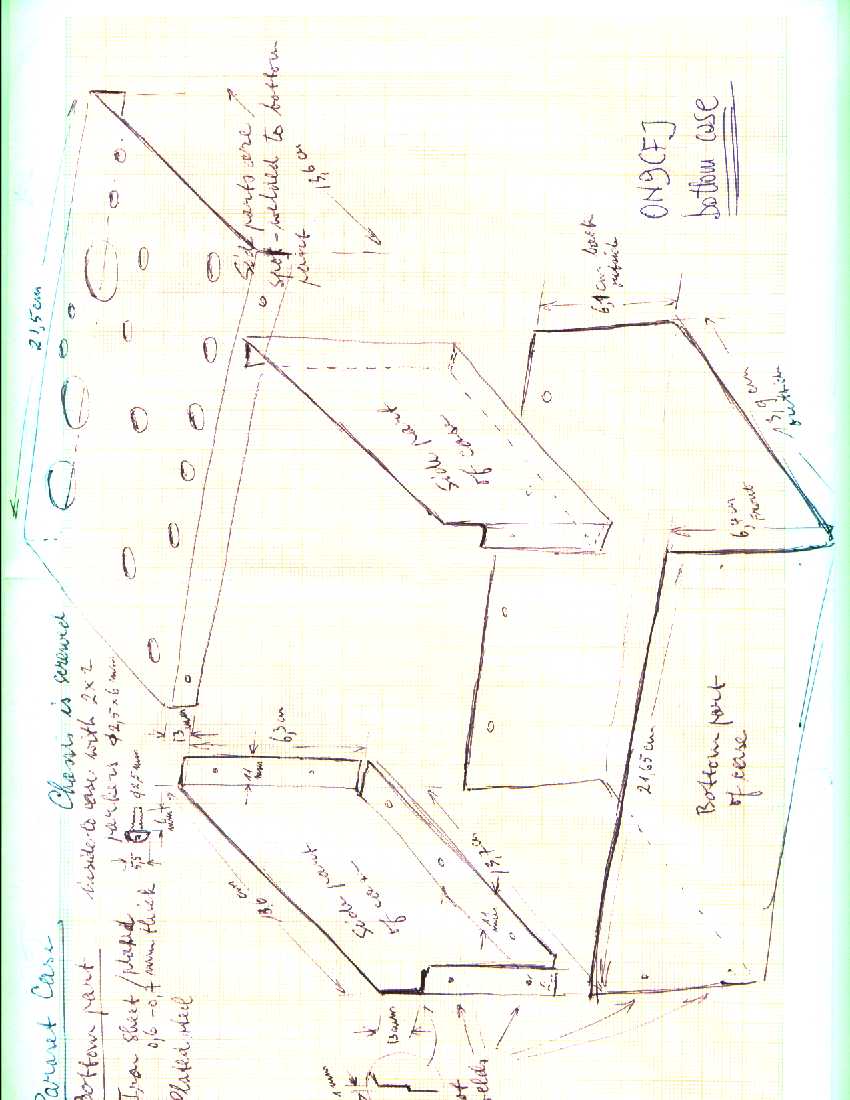 Paraset Case
Bottom part
Iron sheet / plated
0,6-0,7 mm thick
Plated steel
Chassis is screwed
inside to case with 2x2
parkers ⌀2,5x6 mm
21,5 cm
Side parts are
spot-welded to bottom
part
13,6 cm
ON9CFJ
bottom case
6,1 cm back
outside
13,9 cm
outside
6,4 cm
front
Side part
of case
13 mm
6,3 cm
11
mm
Side part
of case
13,0
13,7 cm
11
mm
21,65 cm
Bottom part
of case
13 mm